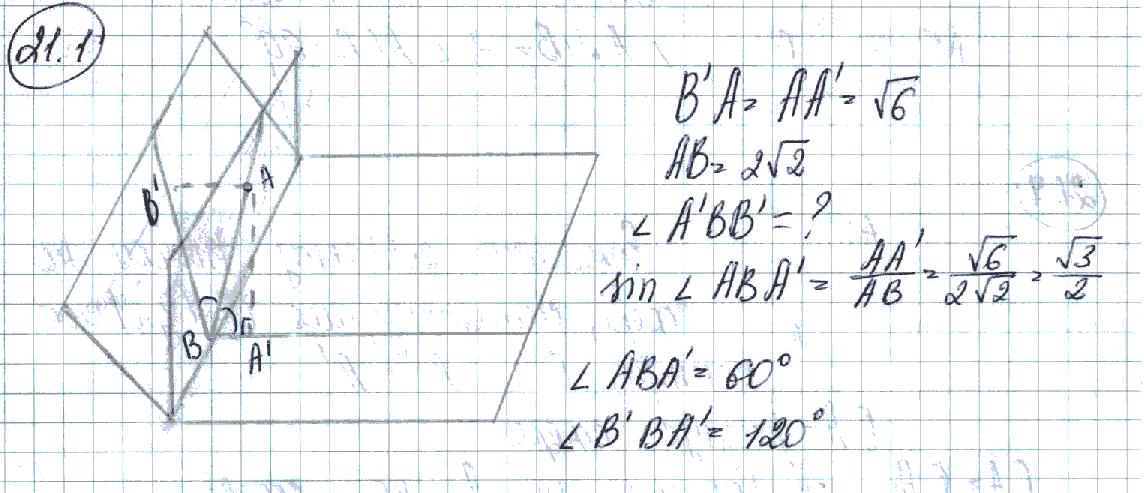 21.1
B'A = AA' = √6
AB = 2√2
∠ A'BB' = ?
sin ∠ ABA' = AA'/AB = √6/2√2 = √3/2
∠ ABA' = 60°
∠ B'BA' = 120°
B'
A
B
A'